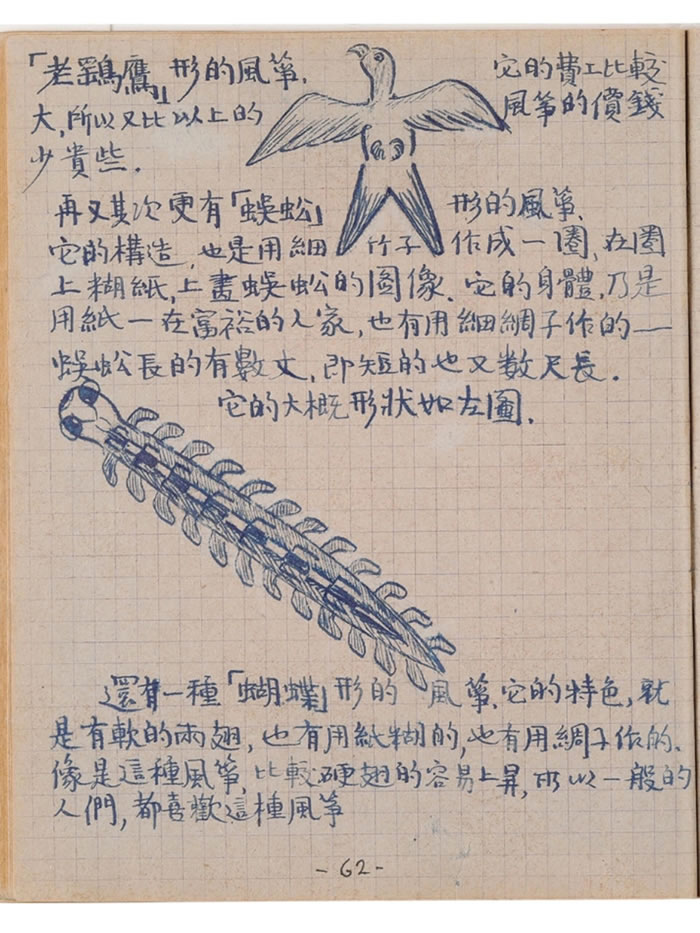 「老鷂鷹」形的風箏. 它的費工比較
大,所以又比以上的 風箏的價錢
少貴些.
再又其次更有「蜈蚣」 形的風箏.
它的構造,也是用細 竹子 作成一圈,在圈
上糊紙,上畫蜈蚣的圖像.它的身體,乃是
用紙—在富裕的人家,也有用細綢子作的—
蜈蚣長的有數丈,即短的也又数尺長.
它的大概形狀如左圖.
還有一種「蝴蝶」形的 風箏.它的特色,就
是有軟的兩翅,也有用紙糊的,也有用綢子作的.
像是這種風箏,比較硬翅的容易上昇,所以一般的
人們,都喜歡這種風箏
-62-